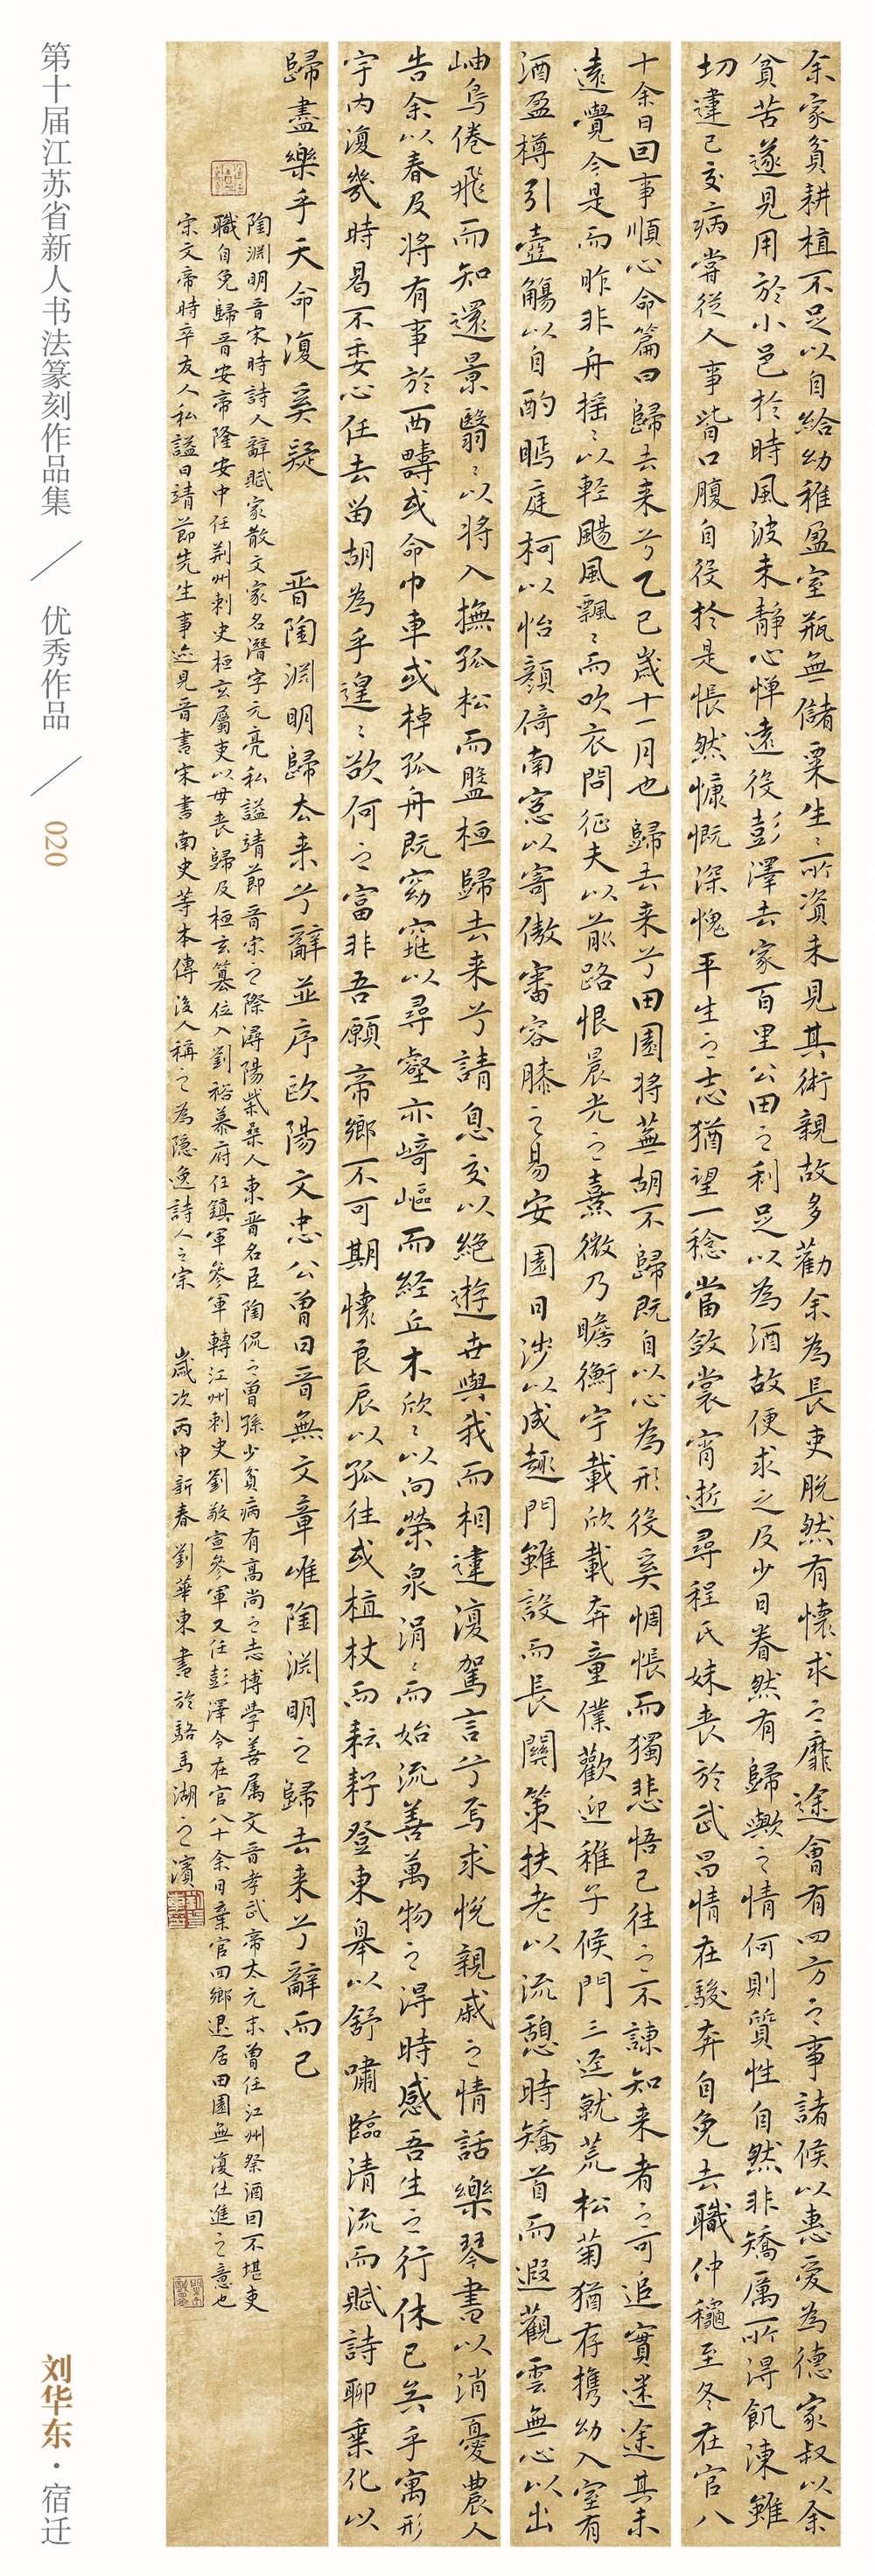 余家貧耕植不足以自給幼稚盈室瓶無儲粟生〻所資未見其術親故多勸余為長吏脫然有懷求之靡途會有四方之事諸侯以惠愛為德家叔以余
貧苦遂見用於小邑於時風波未靜心憚遠役彭澤去家百里公田之利足以為酒故便求之及少日眷然有歸歟之情何則質性自然非矯厲所得飢凍雖
切違己交病嘗從人事皆口腹自役於是悵然慷慨深愧平生之志猶望一稔當斂裳宵逝尋程氏妹喪於武昌情在駿奔自免去職仲秋至冬在官八
十余日回事順心命篇曰歸去来兮乙巳歲十一月也歸去来兮田園将蕪胡不歸既自以心為形役奚惆悵而獨悲悟已往之不諫知来者之可追實迷途其未
遠覺今是而昨非舟搖〻以輕颺風飄〻而吹衣問征夫以前路恨晨光之熹微乃瞻衡宇載欣載奔童僕歡迎稚子候門三逕就荒松菊猶存攜幼入室有
酒盈樽引壺觴以自酌眄庭柯以怡顏倚南窓以寄傲審容膝之易安園日涉以成趣門雖設而長關策扶老以流憩時矯首而遐觀雲無心以出
岫鳥倦飛而知還景翳〻以将入撫孤松而盤桓歸去来兮請息交以絕遊世與我而相違復駕言兮焉求悅親戚之情話樂琴書以消憂農人
告余以春及将有事於西疇或命巾車或棹孤舟既窈窕以尋壑亦崎嶇而経丘木欣〻以向榮泉涓〻而始流善萬物之得時感吾生之行休已矣乎寓形
宇內復幾時曷不委心任去留胡為乎遑〻欲何之富非吾願帝鄉不可期懷良辰以孤往或植杖而耘耔登東皋以舒嘯臨清流而賦詩聊乗化以
歸盡樂乎天命復奚疑 晋陶淵明歸去来兮辭並序歐陽文忠公曾曰晋無文章唯陶淵明之歸去来兮辭而已
陶淵明晋宋時詩人辭賦家散文家名潛字元亮私謚靖節晋宋之際潯陽柴桑人東晋名臣陶侃之曾孫少貧病有高尚之志博學善属文晋孝武帝太元末曾任江州祭酒曰不堪吏
職自免歸晋安帝隆安中任荆州刺史桓玄屬吏以母喪歸及桓玄篡位入劉裕幕府任鎮軍參軍轉江州刺史劉敬宣參軍又任彭澤令在官八十余日棄官回鄉退居田園無復仕進之意也
宋文帝時卒友人私謚曰靖節先生事迹見晋書宋書南史等本傳後人稱之為隐逸詩人之宗 歲次丙申新春劉華東書於駱馬湖之濱
第十届江苏省新人书法篆刻作品集 ／ 优秀作品 ／ 020
刘华东·宿迁